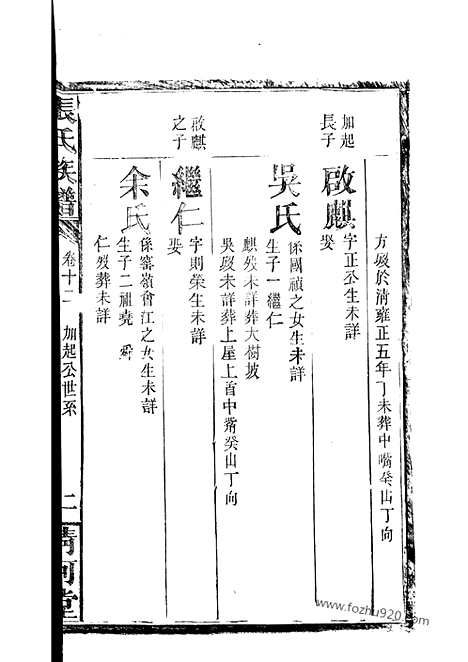 方歿於清雍正五年丁未葬中嘴癸山丁向
加起長子
啟麒
字正公生未詳
娶
吳氏
係國禎之女生未詳
生子一繼仁
麒歿未詳葬大樹坡
吳歿未詳葬上屋上首中嘴癸山丁向
啟麒之子
繼仁
字則榮生未詳
娶
余氏
係寨嶺會江之女生未詳
生子二祖堯 舜
仁歿葬未詳
張氏族譜 卷十二 加起公世系 二 清河堂
www.fozhu920.com